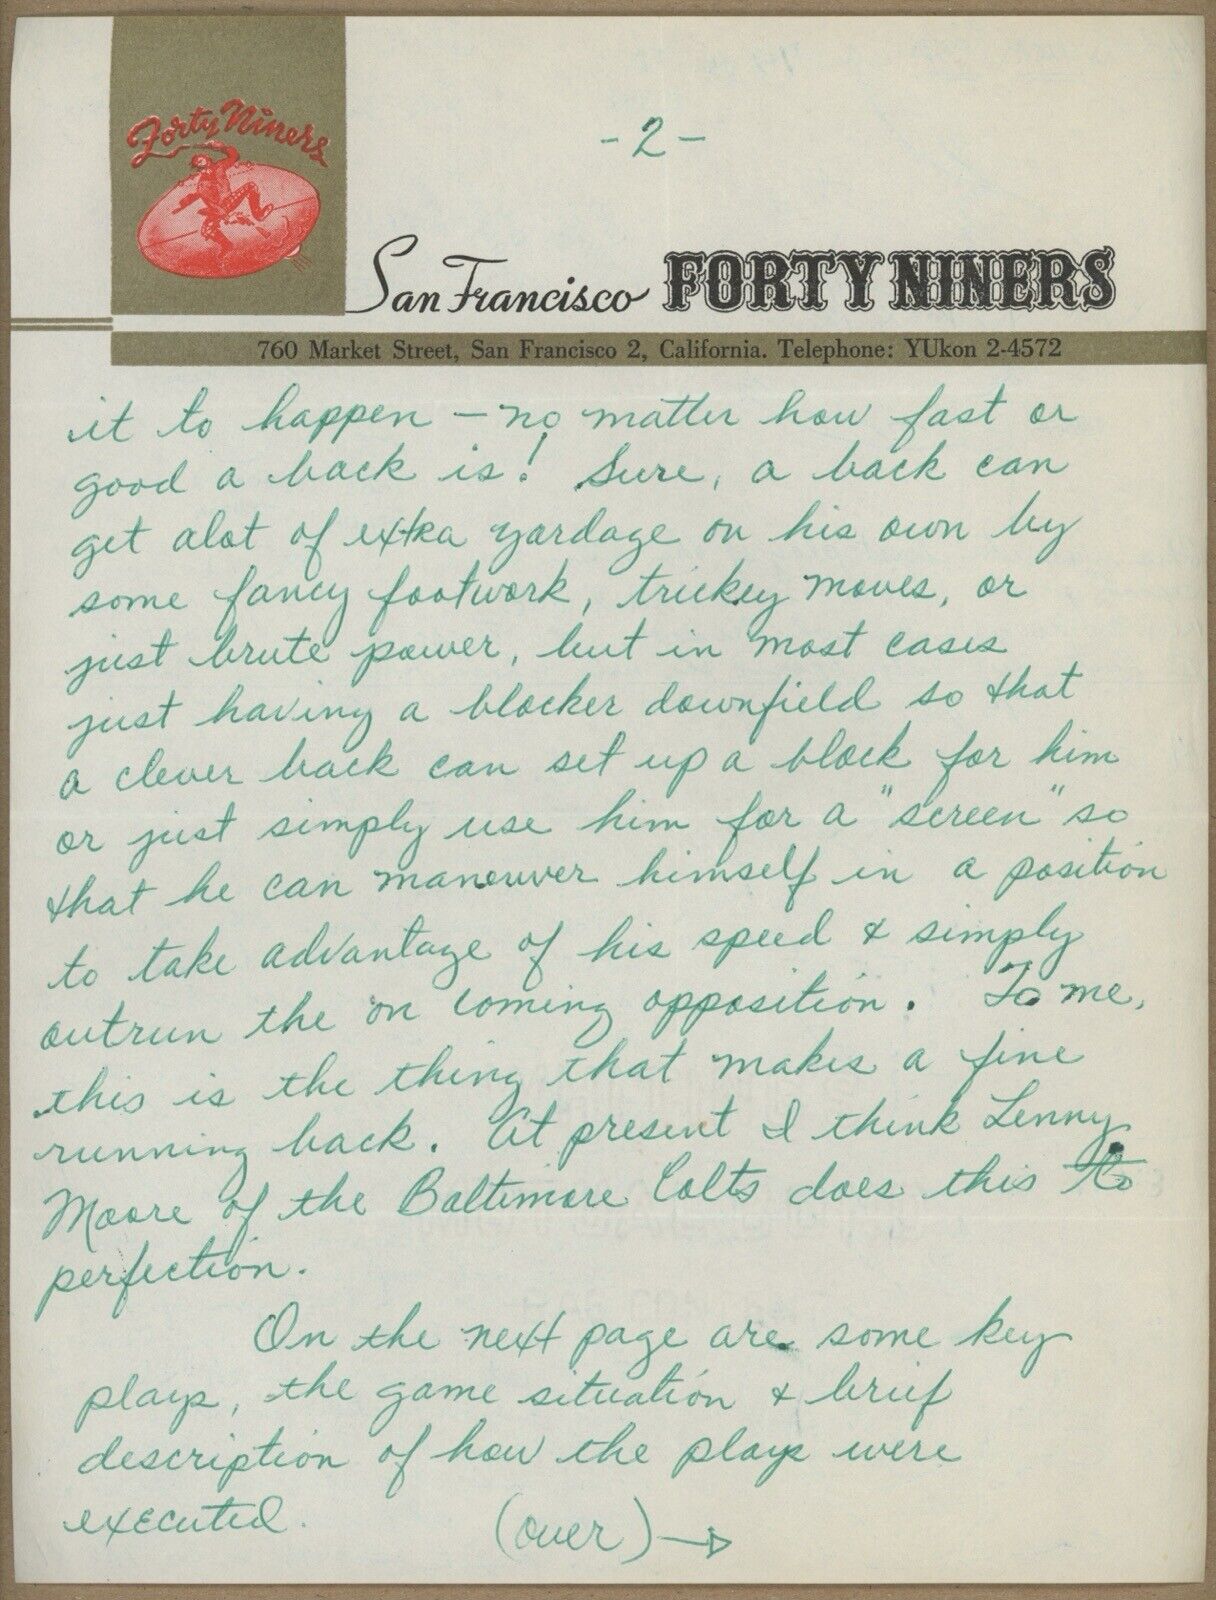 Forty Niners
- 2 -
San Francisco FORTY NINERS
760 Market Street, San Francisco 2, California. Telephone: YUkon 2-4572
it to happen — no matter how fast or
good a back is! Sure, a back can
get alot of extra yardage on his own by
some fancy footwork, trickey moves, or
just brute power, but in most cases
just having a blocker downfield so that
a clever back can set up a block for him
or just simply use him for a "screen" so
that he can maneuver himself in a position
to take advantage of his speed & simply
outrun the on coming opposition. To me,
this is the thing that makes a fine
running back. At present I think Lenny
Moore of the Baltimore Colts does this to
perfection.
On the next page are some key
plays, the game situation & brief
description of how the plays were
executed.
(over) →